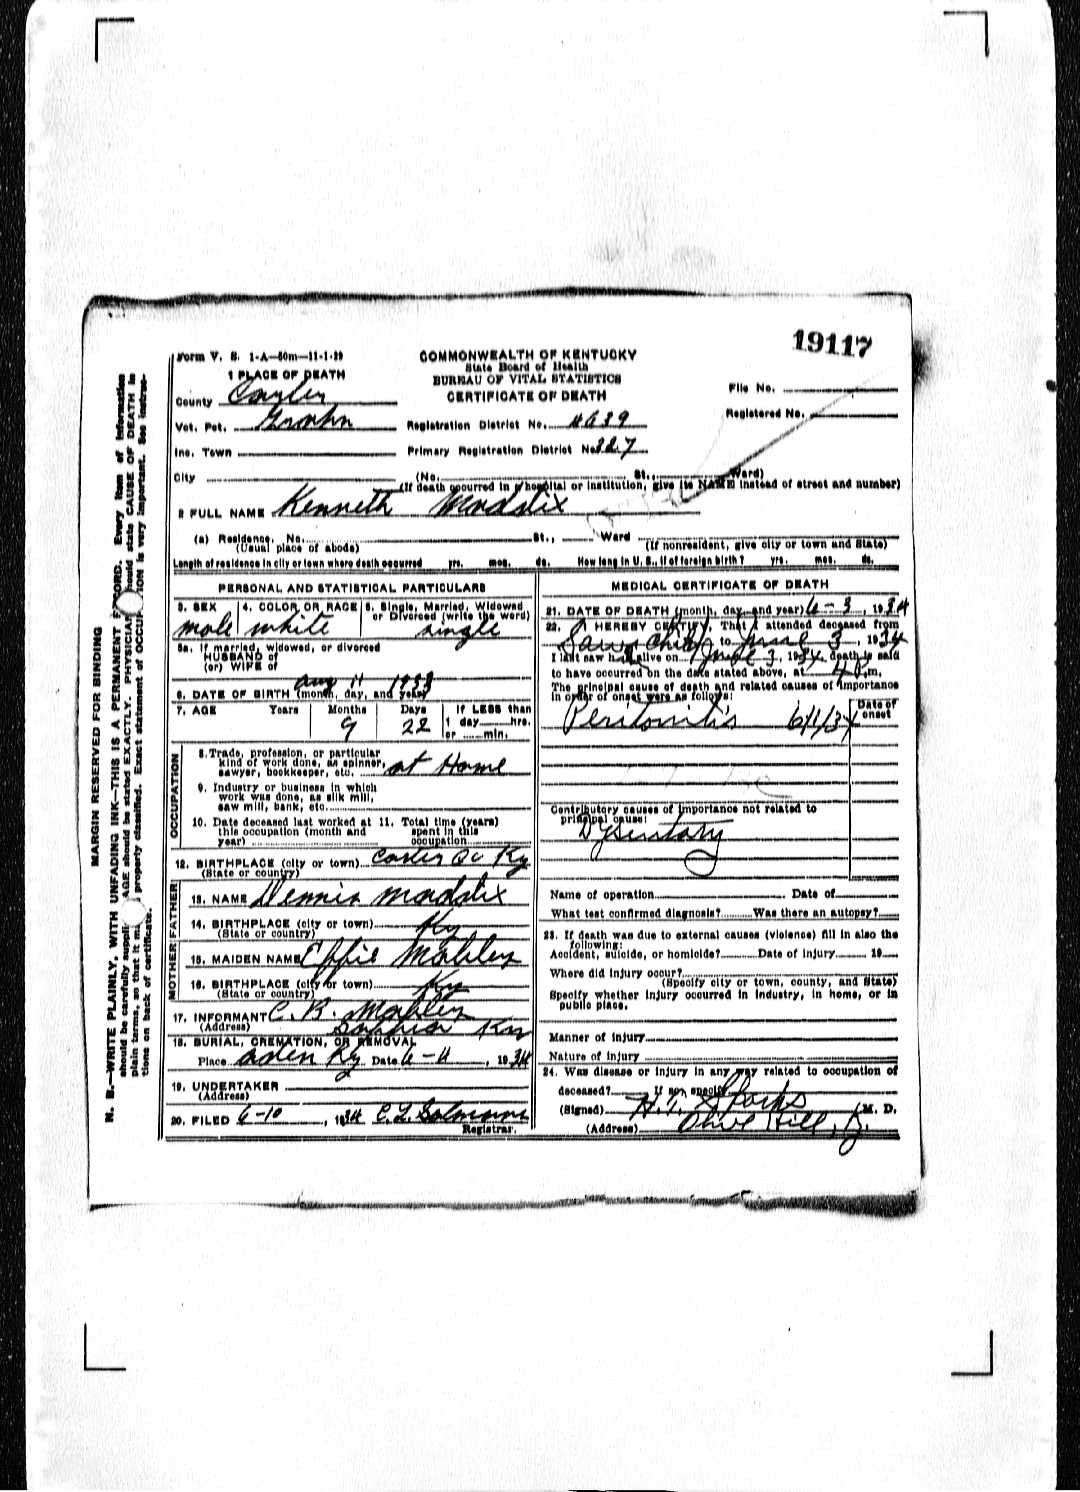 19117
Form V. S. 1-A—50m—11-1-29
COMMONWEALTH OF KENTUCKY
State Board of Health
BUREAU OF VITAL STATISTICS
CERTIFICATE OF DEATH
File No.
Registered No.
1 PLACE OF DEATH
County Carter
Vot. Pct. Grahn Registration District No. #639
Inc. Town Primary Registration District No. 327
City (No. St., Ward)
(If death occurred in a hospital or institution, give its NAME instead of street and number)
2 FULL NAME Kenneth Maddix
(a) Residence. No. St., Ward
(Usual place of abode) (If nonresident, give city or town and State)
Length of residence in city or town where death occurred yrs. mos. ds. How long in U. S., if of foreign birth? yrs. mos. ds.
PERSONAL AND STATISTICAL PARTICULARS
3. SEX 4. COLOR OR RACE 5. Single, Married, Widowed
or Divorced (write the word)
male white single
5a. If married, widowed, or divorced
HUSBAND of
(or) WIFE of
6. DATE OF BIRTH (month, day, and year) Aug 11 1933
7. AGE Years Months Days If LESS than
9 22 1 day hrs.
or min.
OCCUPATION
8. Trade, profession, or particular
kind of work done, as spinner,
sawyer, bookkeeper, etc. at Home
9. Industry or business in which
work was done, as silk mill,
saw mill, bank, etc.
10. Date deceased last worked at 11. Total time (years)
this occupation (month and spent in this
year) occupation
12. BIRTHPLACE (city or town) Carter Co Ky
(State or country)
FATHER
13. NAME Dennis Maddix
14. BIRTHPLACE (city or town) Ky
(State or country)
MOTHER
15. MAIDEN NAME Effie Mabley
16. BIRTHPLACE (city or town) Ky
(State or country)
17. INFORMANT C. B. Mabley
(Address) Ky
18. BURIAL, CREMATION, OR REMOVAL
Place Aden Ky Date 6-4, 1934
19. UNDERTAKER
(Address)
20. FILED 6-10, 1934 C. L.
Registrar.
MEDICAL CERTIFICATE OF DEATH
21. DATE OF DEATH (month, day, and year) 6-3, 1934
22. I HEREBY CERTIFY, That I attended deceased from
Saw child to June 3, 1934
I last saw h alive on June 3, 1934, death is said
to have occurred on the date stated above, at 4 P.m.
The principal cause of death and related causes of importance
in order of onset were as follows:
Date of
onset
Peritonitis 6/1/34
Contributory causes of importance not related to
principal cause:
Dysentary
Name of operation Date of
What test confirmed diagnosis? Was there an autopsy?
23. If death was due to external causes (violence) fill in also the
following:
Accident, suicide, or homicide? Date of injury 19
Where did injury occur?
(Specify city or town, county, and State)
Specify whether injury occurred in industry, in home, or in
public place.
Manner of injury
Nature of injury
24. Was disease or injury in any way related to occupation of
deceased? If so, specify
(Signed) H. T. Sparks, M. D.
(Address) Olive Hill, Ky.
MARGIN RESERVED FOR BINDING
N. B.—WRITE PLAINLY, WITH UNFADING INK—THIS IS A PERMANENT RECORD. Every item of information
should be carefully supplied. AGE should be stated EXACTLY. PHYSICIANS should state CAUSE OF DEATH in
plain terms, so that it may be properly classified. Exact statement of OCCUPATION is very important. See instruc-
tions on back of certificate.